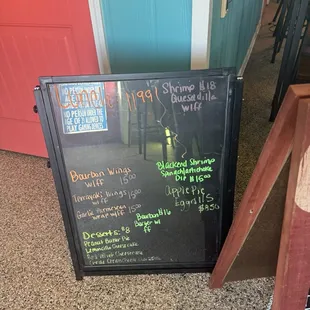 1991
NO PERSON UNDER THE
AGE OF
TO PLAY
Shrimp $18
Quesadilla
w/ff
Bourbon Wings
w/ff 15.00
Teriyaki Wings
w/ff 15.00
Garlic Parmesean
wrap w/ff 15.00
Blackend Shrimp
Spinach artichoke
Dip $15
Apple Pie
Eggrolls
$9.50
Bourbon $16
Burger w/
ff
Desserts: $8
Peanut Butter Pie
Lemoncello Cheesecake
Cheesecake